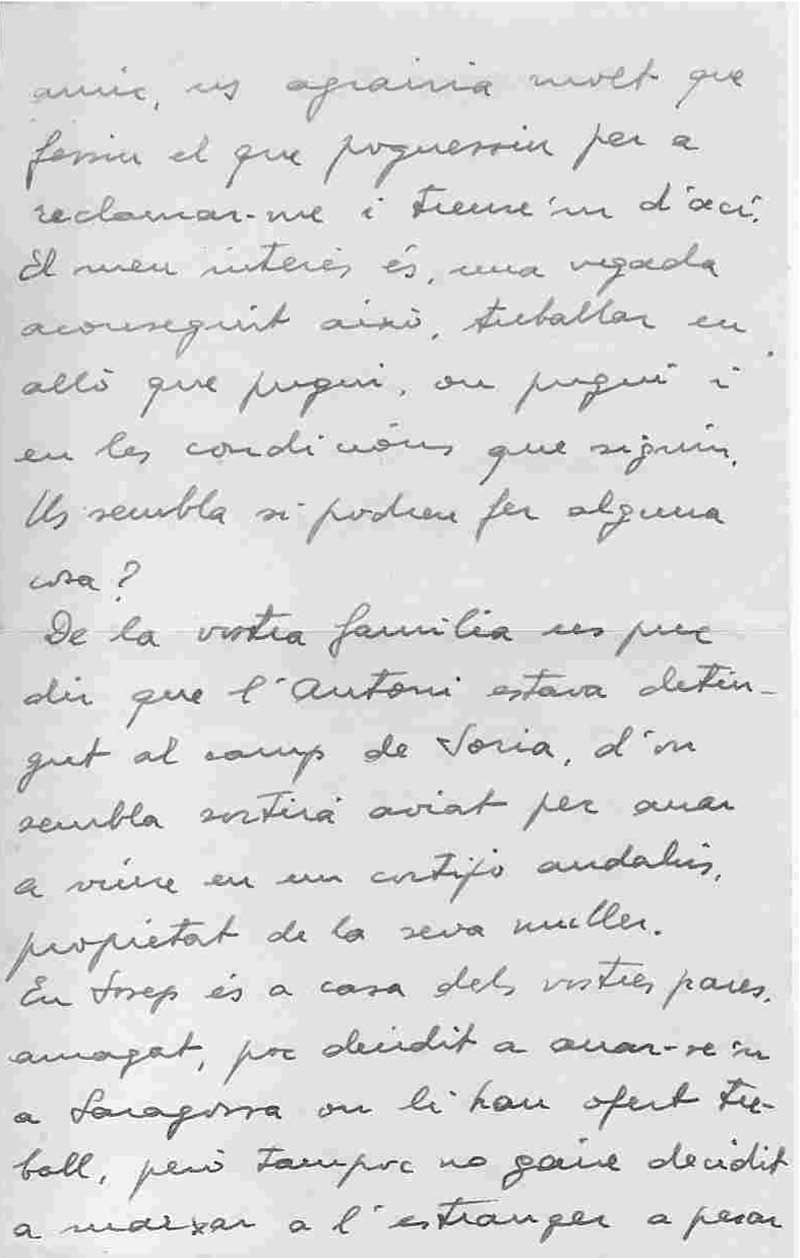 amic, us agrairia molt que
fessiu el que poguessiu per a
reclamar-me i treure'm d'ací.
El meu interès és, una vegada
aconseguit això, treballar en
allò que pugui, on pugui i
en les condicións que siguin.
Us sembla si podreu fer alguna
cosa?
De la vostra família us puc
dir que l'Antoni estava detin-
gut al camp de Soria, d'on
sembla sortirà aviat per anar
a viure en un cortijo andalús,
propietat de la seva muller.
En Josep és a casa dels vostres pares,
amagat, poc decidit a anar-se'n
a Saragossa on li han ofert tre-
ball, però tampoc no gaire decidit
a marxar a l'estranger a pesar